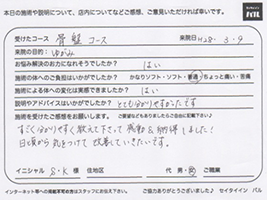 本日の施術や説明について、店内についてなどご感想、ご意見いただければ幸いです。 バル
受けたコース 骨盤 コース 来院日 H28・3・9
来院の目的: ゆがみ
お悩み解決のお力になれそうでしたか？ はい
施術の体へのご負担はいかがでしたか？ かなりソフト・ソフト・普通・ちょっと痛い・苦痛
施術による体への変化は実感できましたか？ はい
説明やアドバイスはいかがでしたか？ とても分かりやすかったです
施術を受けたご感想をお願いします。
すごく分かりやすく教えて下さって感動&納得しました！
日頃から気をつけて改善していきたいです。
イニシャル S・K 様 住地区 代 男・女 ご職業
インターネット等への掲載不可の方はスタッフにお伝え下さい。 ご協力ありがとうございました。 セイタイイン バル